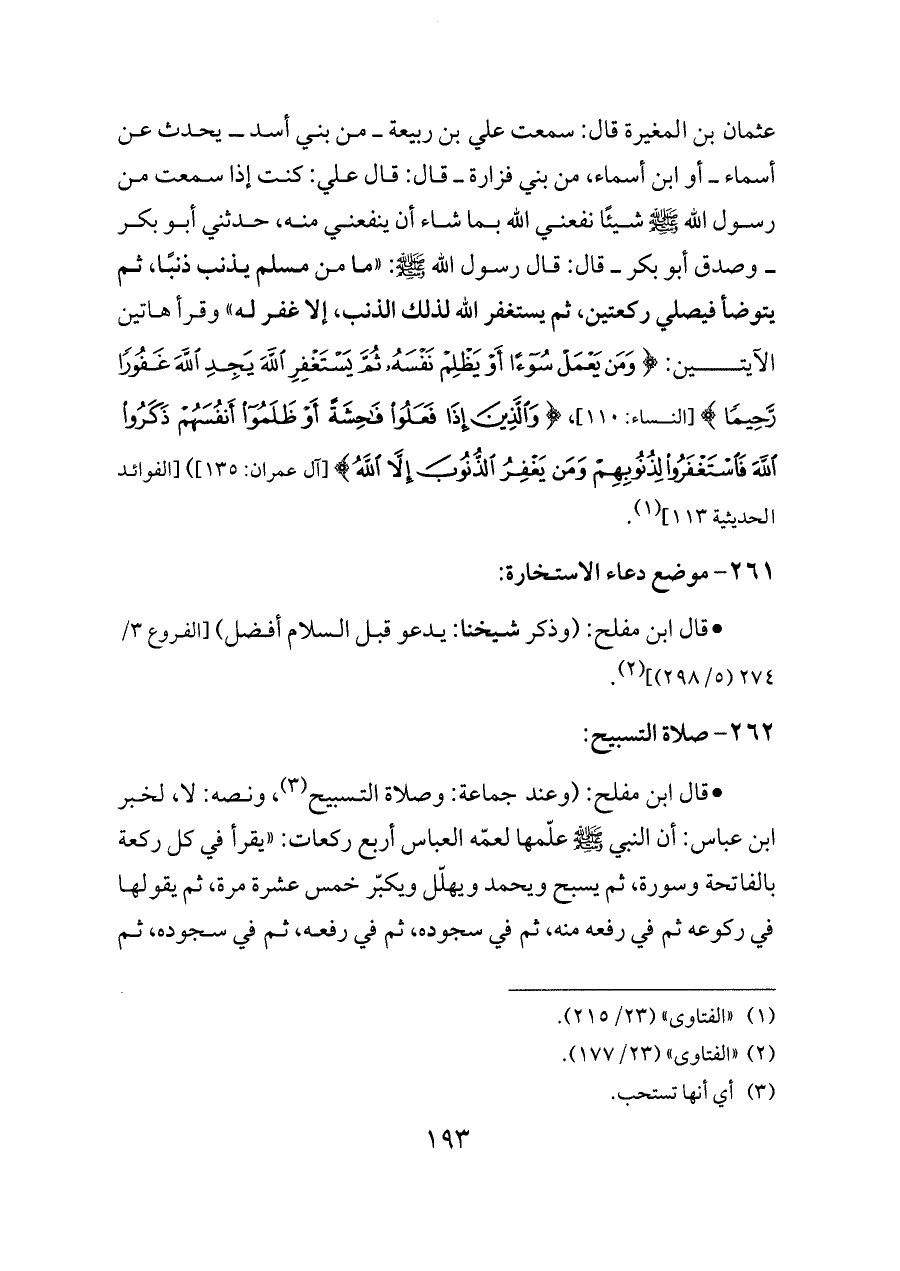 عثمان بن المغيرة قال: سمعت علي بن ربيعة ـ من بني أسد ـ يحدث عن
أسماء ـ أو ابن أسماء، من بني فزارة ـ قال: قال علي: كنت إذا سمعت من
رسول الله ﷺ شيئًا نفعني الله بما شاء أن ينفعني منه، حدثني أبو بكر
ـ وصدق أبو بكر ـ قال: قال رسول الله ﷺ: «ما من مسلم يذنب ذنبًا، ثم
يتوضأ فيصلي ركعتين، ثم يستغفر الله لذلك الذنب، إلا غفر له» وقرأ هاتين
الآيتـــــين: ﴿ وَمَن يَعْمَلْ سُوٓءًا أَوْ يَظْلِمْ نَفْسَهُۥ ثُمَّ يَسْتَغْفِرِ ٱللَّهَ يَجِدِ ٱللَّهَ غَفُورًا
رَّحِيمًا ﴾ [النساء: ١١٠]، ﴿ وَٱلَّذِينَ إِذَا فَعَلُوا۟ فَٰحِشَةً أَوْ ظَلَمُوٓا۟ أَنفُسَهُمْ ذَكَرُوا۟
ٱللَّهَ فَٱسْتَغْفَرُوا۟ لِذُنُوبِهِمْ وَمَن يَغْفِرُ ٱلذُّنُوبَ إِلَّا ٱللَّهُ ﴾ [آل عمران: ١٣٥]) [الفوائد
الحديثية ١١٣](١).
٢٦١- موضع دعاء الاستخارة:
• قال ابن مفلح: (وذكر شيخنا: يدعو قبل السلام أفضل) [الفروع ٣/
٢٧٤ (٥/ ٢٩٨)](٢).
٢٦٢- صلاة التسبيح:
• قال ابن مفلح: (وعند جماعة: وصلاة التسبيح(٣)، ونصه: لا، لخبر
ابن عباس: أن النبي ﷺ علّمها لعمّه العباس أربع ركعات: «يقرأ في كل ركعة
بالفاتحة وسورة، ثم يسبح ويحمد ويهلّل ويكبّر خمس عشرة مرة، ثم يقولها
في ركوعه ثم في رفعه منه، ثم في سجوده، ثم في رفعه، ثم في سجوده، ثم
(١) «الفتاوى» (٢٣/ ٢١٥).
(٢) «الفتاوى» (٢٣/ ١٧٧).
(٣) أي أنها تستحب.
١٩٣